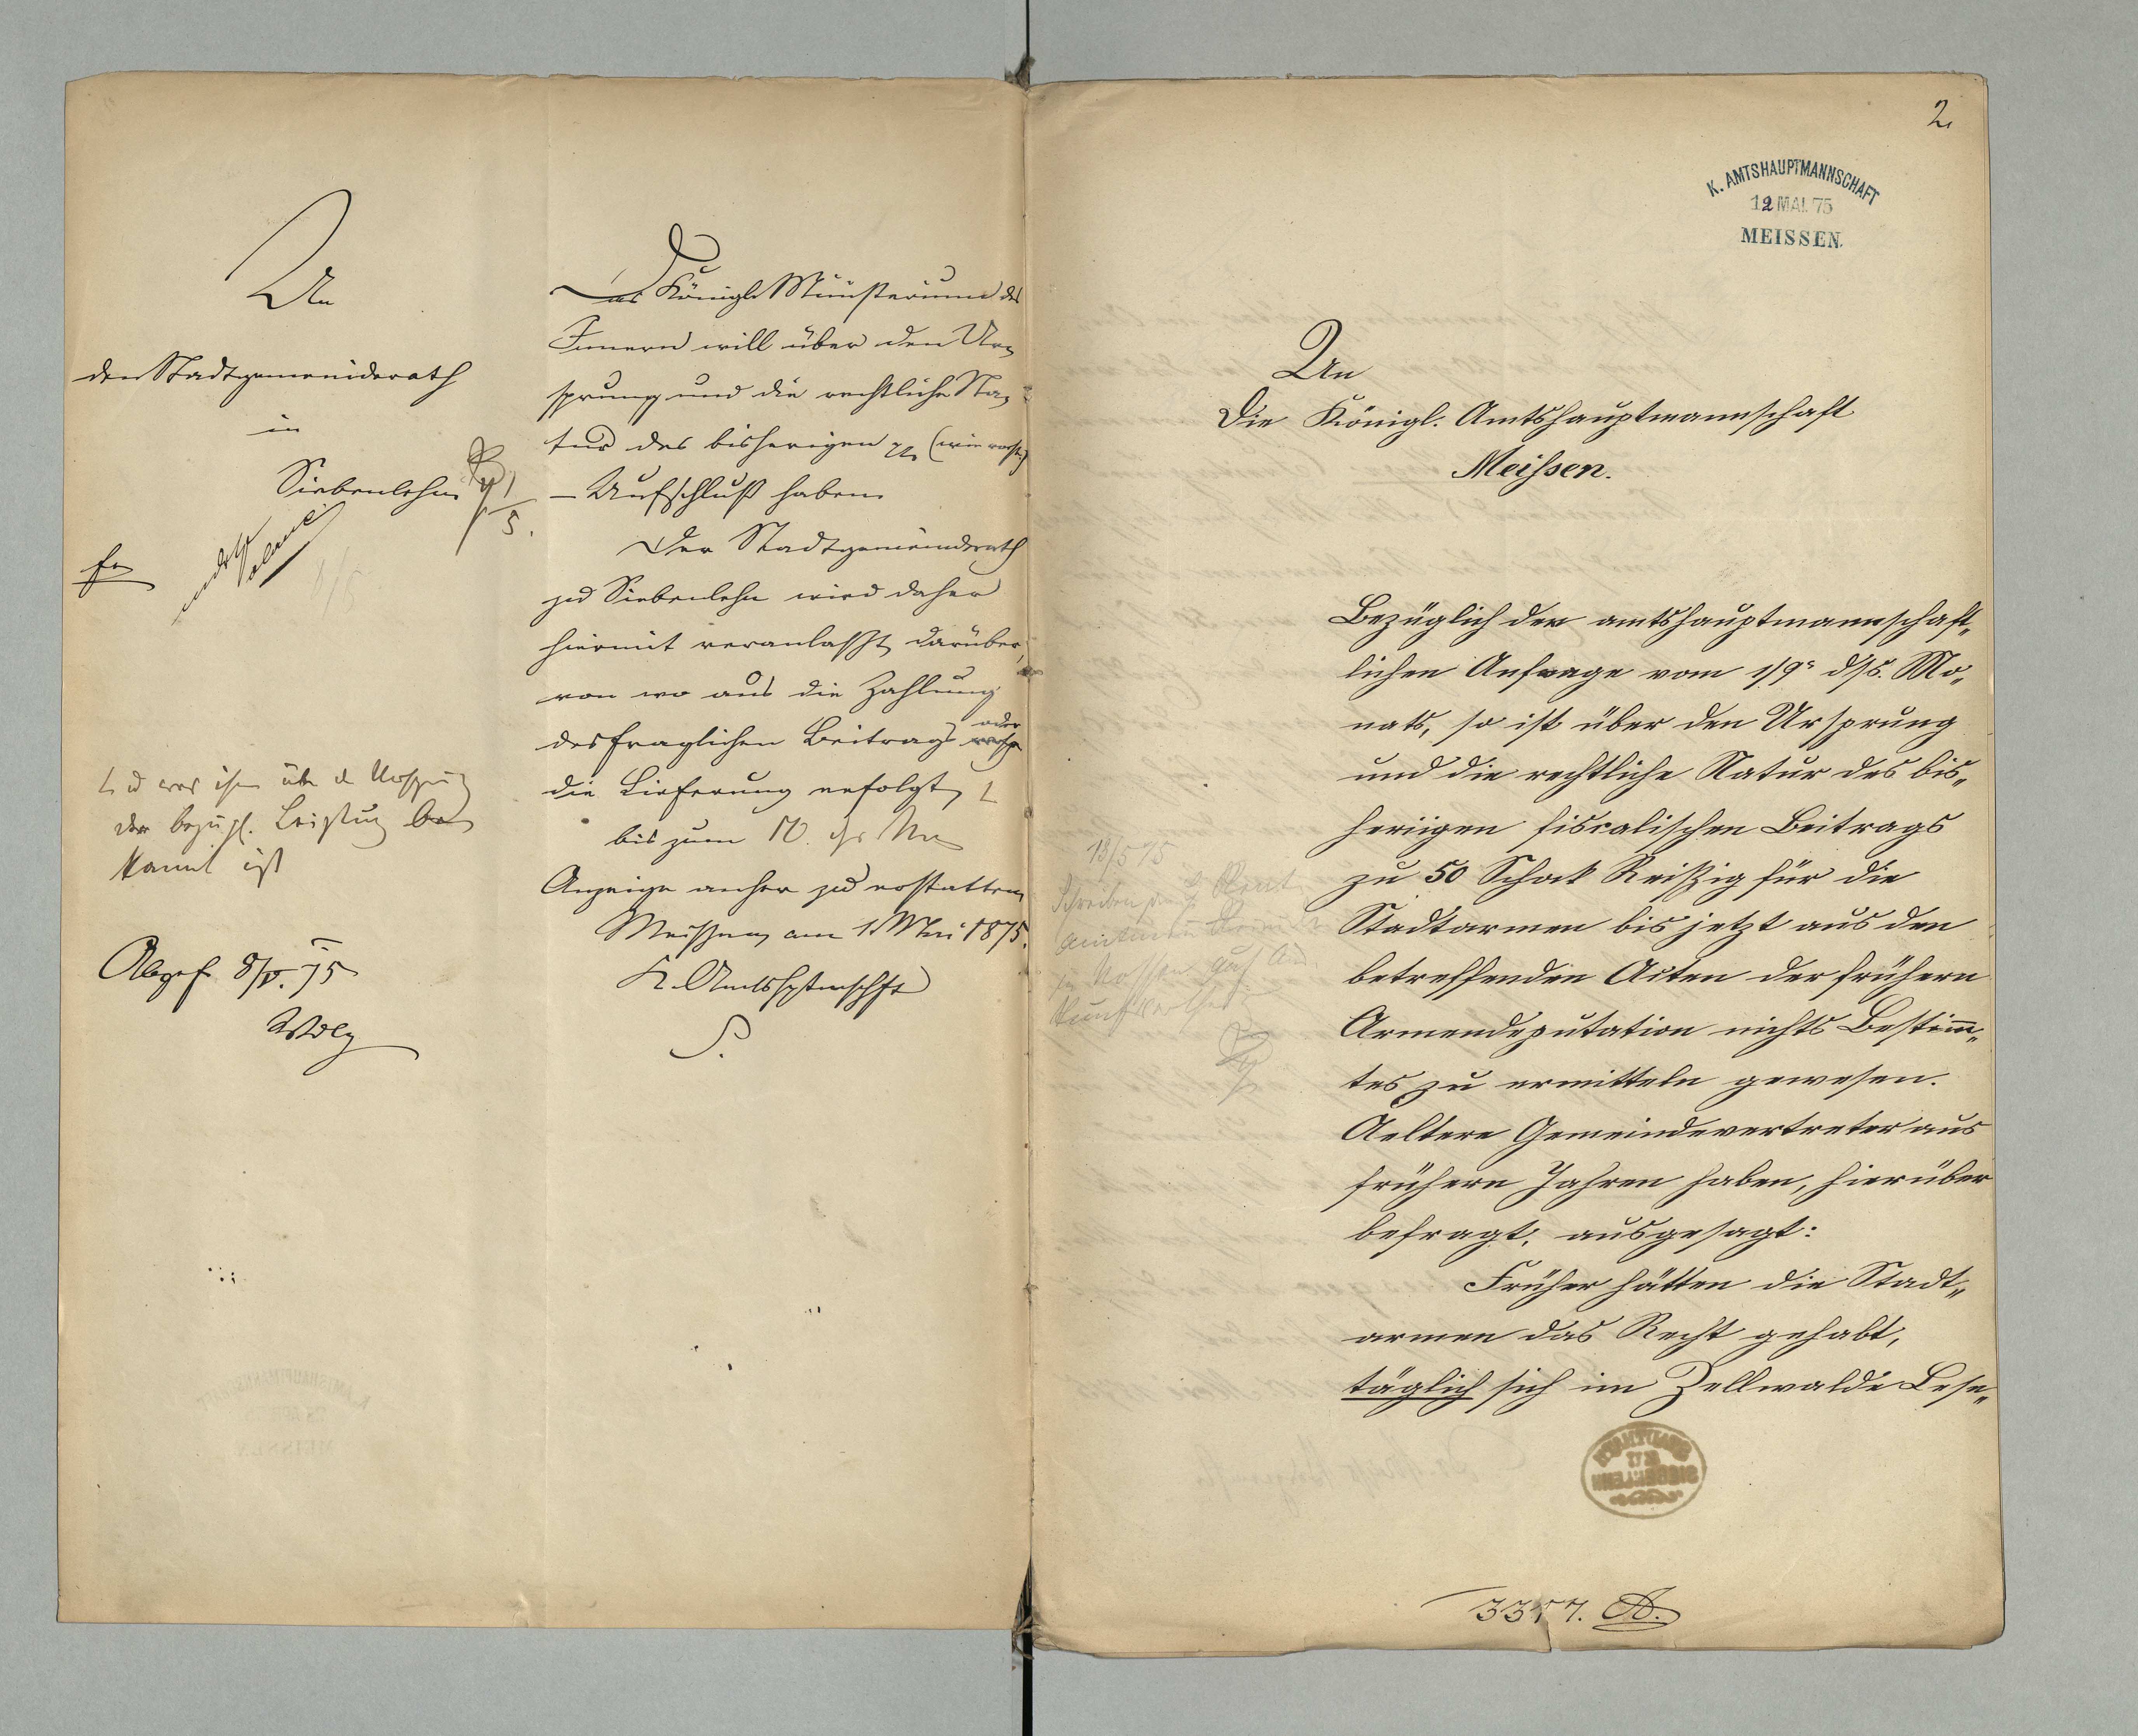 An
den Stadtgemeinderath
in
Siebenlehn
5.
u. was ihm über den Ursprung
der bezügl. Leistung be
kannt ist
Abges. 8/V. 75
Das Königl. Ministerium des
Innern will über den Ur-
sprung und die rechtliche Na-
tur des bisherigen (wie vorst.)
– Aufschluß haben.
Der Stadtgemeinderath
zu Siebenlehn wird daher
hiermit veranlaßt, darüber,
von wo aus die Zahlung
des fraglichen Beitrags oder
die Lieferung erfolgt,
bis zum 10. ds. Mts.
Anzeige anher zu erstatten.
Meißen, am 1. Mai 1875.
K. Amtshptmschft
S.
2.
K. AMTSHAUPTMANNSCHAFT
12 MAI. 75
MEISSEN.
An
Die Königl. Amtshauptmannschaft
Meißen.
13/5 75
Schreiben
Nossen
Bezüglich der amtshauptmannschaft„
lichen Anfrage vom 1/9r ds. Mo„
nats, so ist über den Ursprung
und die rechtliche Natur des bis„
herigen fiscalischen Beitrags
zu 50 Schock Reißig für die
Stadtarmen bis jetzt aus den
betreffenden Acten der frühern
Armendeputation nichts Bestim̅„
tes zu ermitteln gewesen.
Aeltere Gemeindevertreter aus
frühern Jahren haben, hierüber
befragt, ausgesagt:
Früher hätten die Stadt„
armen das Recht gehabt,
täglich sich im Zellwalde Lese„
STADTRATH
ZU
SIEBENLEHN
3357. A.